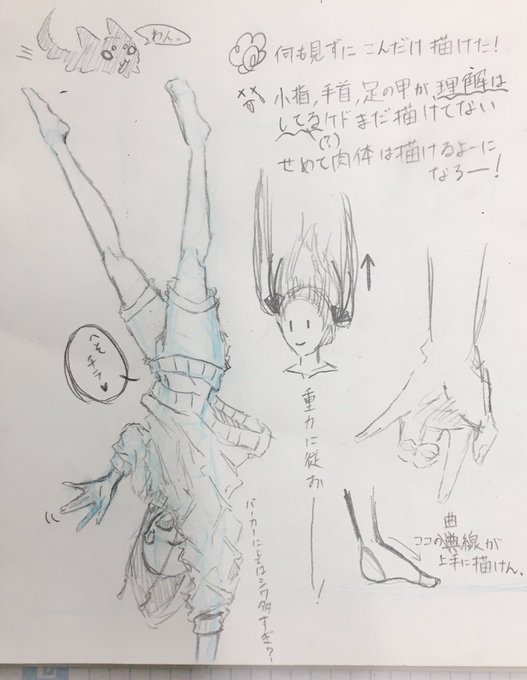 わん。
何も見ずに こんだけ 描けた!
小指,手首,足の甲が 理解は
してるケドまだ描けてない
(?)
せめて肉体は描けるよーに
なろー!
へそ
チラ
重力に従おー!
パーカーにしてはシワ多すぎ?
曲
ココの典線が
上手に描けん。